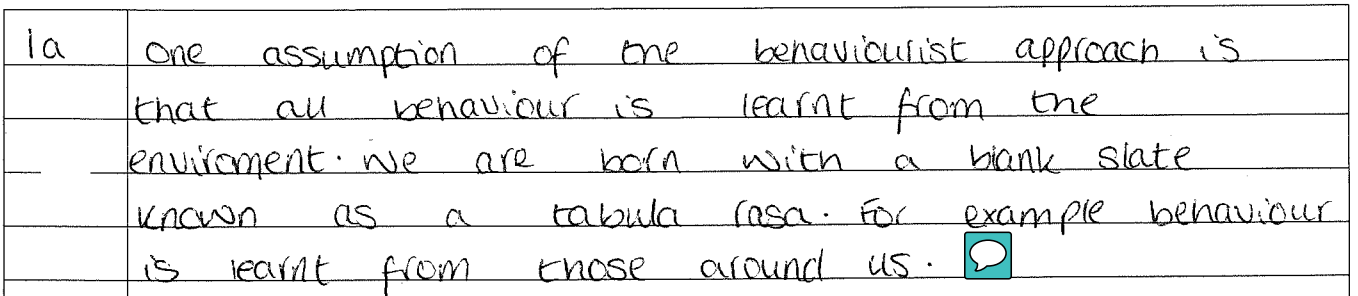 1a One assumption of the behaviourist approach is
that all behaviour is learnt from the
enviroment. We are born with a blank slate
known as a tabula rasa. For example behaviour
is learnt from those around us.